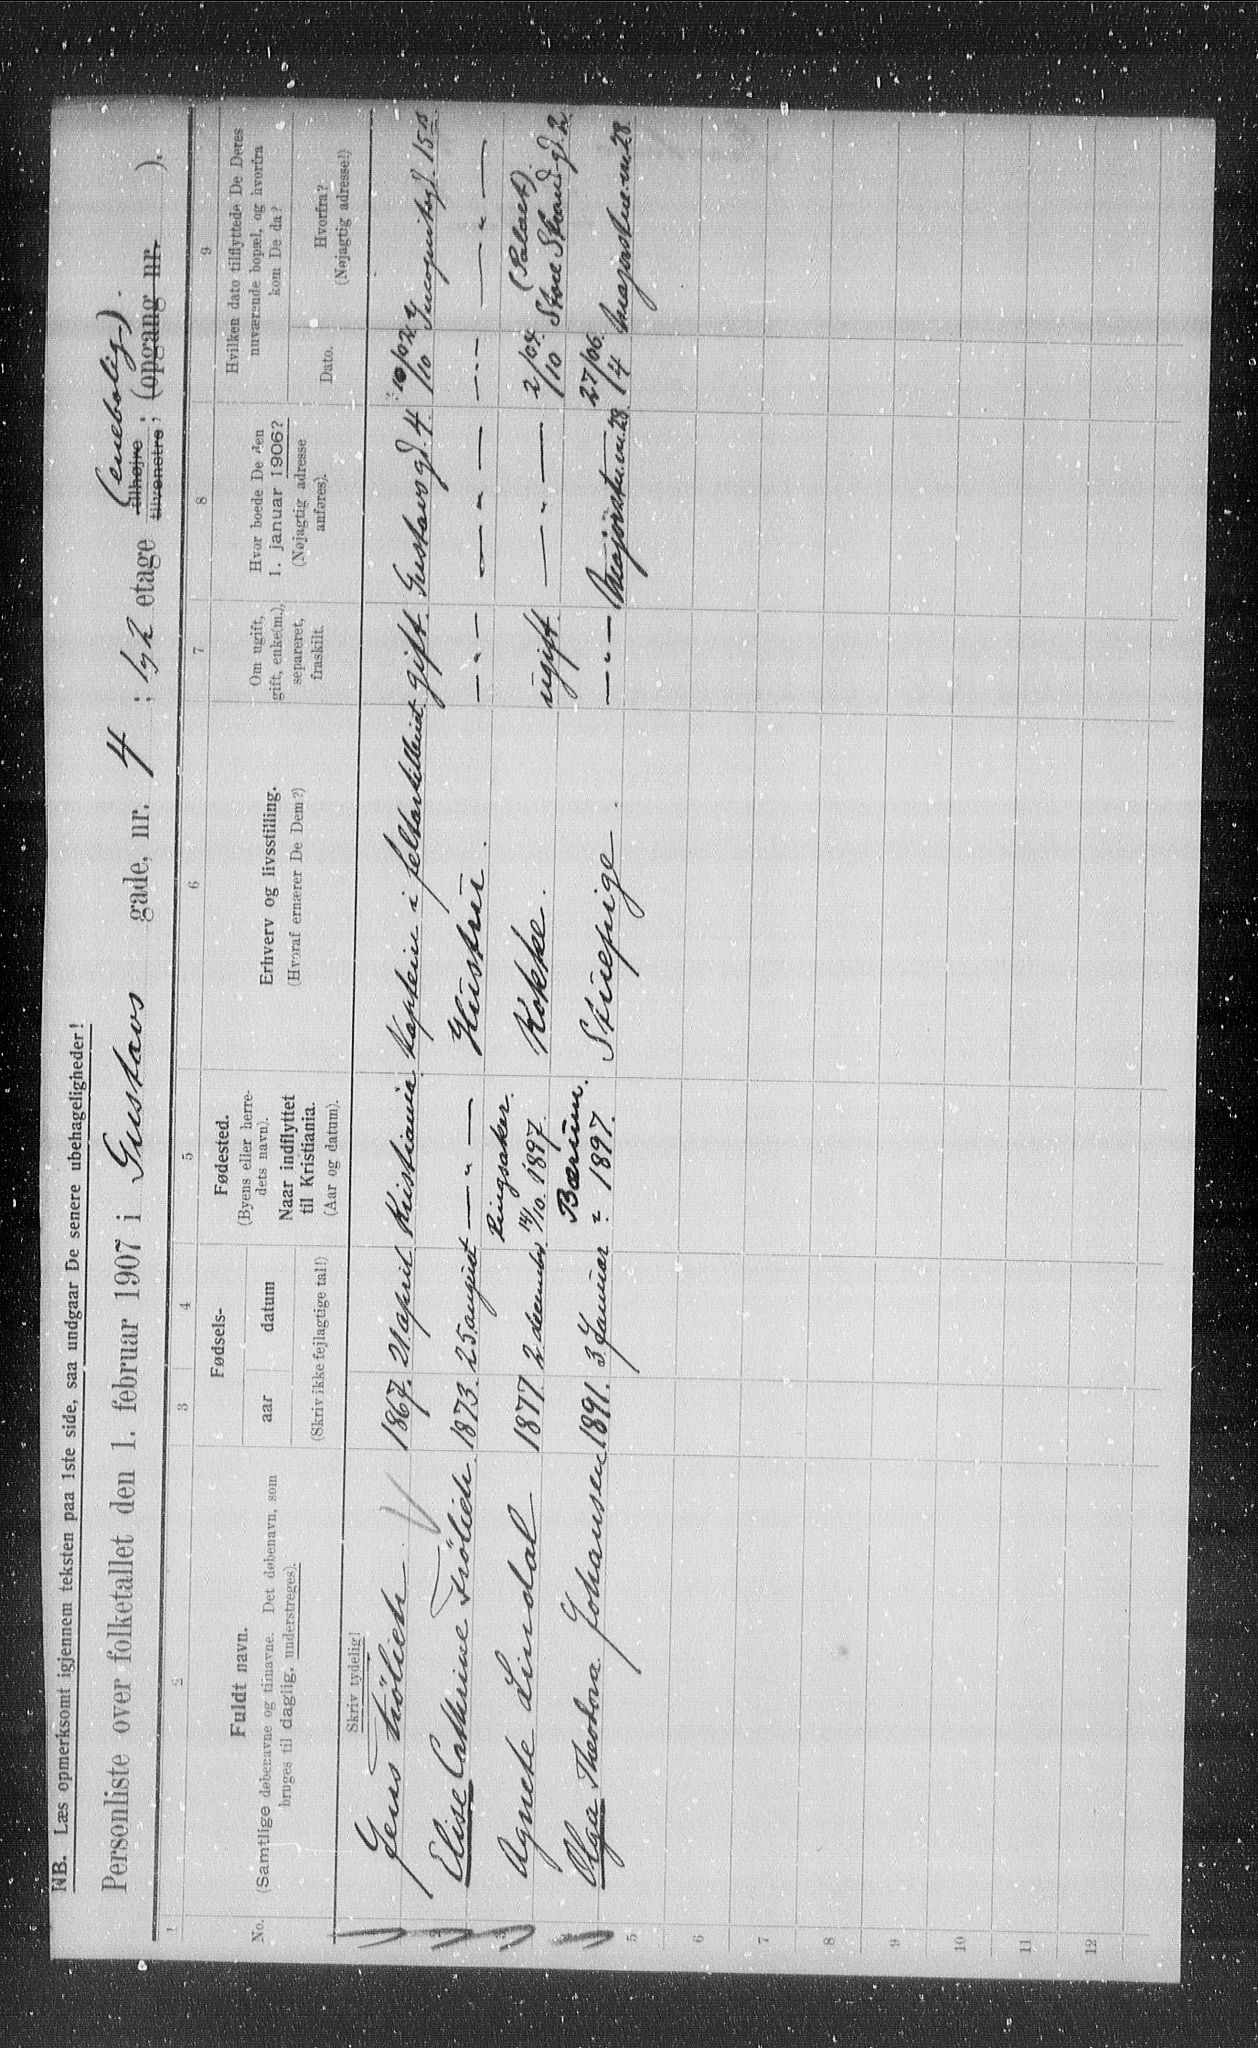 NB. Læs opmerksomt igjennem teksten paa 1ste side, saa undgaar De senere ubehageligheder!
Personliste over folketallet den 1. februar 1907 i Gustavs gade, nr. 4 ; 1 & 2 etage tilhøjre tilvenstre (enebolig). ; (opgang nr. ).
1 2 3 4 5 6 7 8 9
No.
Fuldt navn.
(Samtlige døbenavne og tilnavne. Det døbenavn, som
bruges til daglig, understreges).
Skriv tydelig!
Fødsels-
aar datum
(Skriv ikke fejlagtige tal!)
Fødested.
(Byens eller herre-
dets navn).
Naar indflyttet
til Kristiania.
(Aar og datum).
Erhverv og livsstilling.
(Hvoraf ernærer De Dem?)
Om ugift,
gift, enke(m.),
separeret,
fraskilt.
Hvor boede De den
1. januar 1906?
(Nøjagtig adresse
anføres).
Hvilken dato tilflyttede De Deres
nuværende bopæl, og hvorfra
kom De da?
Dato.
Hvorfra?
(Nøjagtig adresse!)
Jens Frölich. 1867. 21 april Kristiania Kaptein i feltartilleriet gift. Gustavs gd. 4. 10/10 Incognitogd. 15
2 Elise Cathrine Frölich. 1873. 25 august — " — Hustru. — " — — " — — " — — " —
3 Agnete Lindal 1877. 2 december. Ringsaker. 14/10. 1897. Kokke. ugift — " — 2/10 04. (Palæet). Store Strandgd. 2
4 Olga Theodora Johansen 1891. 3 Januar Bærum. = 1897. Stuepige — " — Majorstu.vn. 28. 27/4 06. Majorstuevn. 28.
5
6
7
8
9
10
11
12